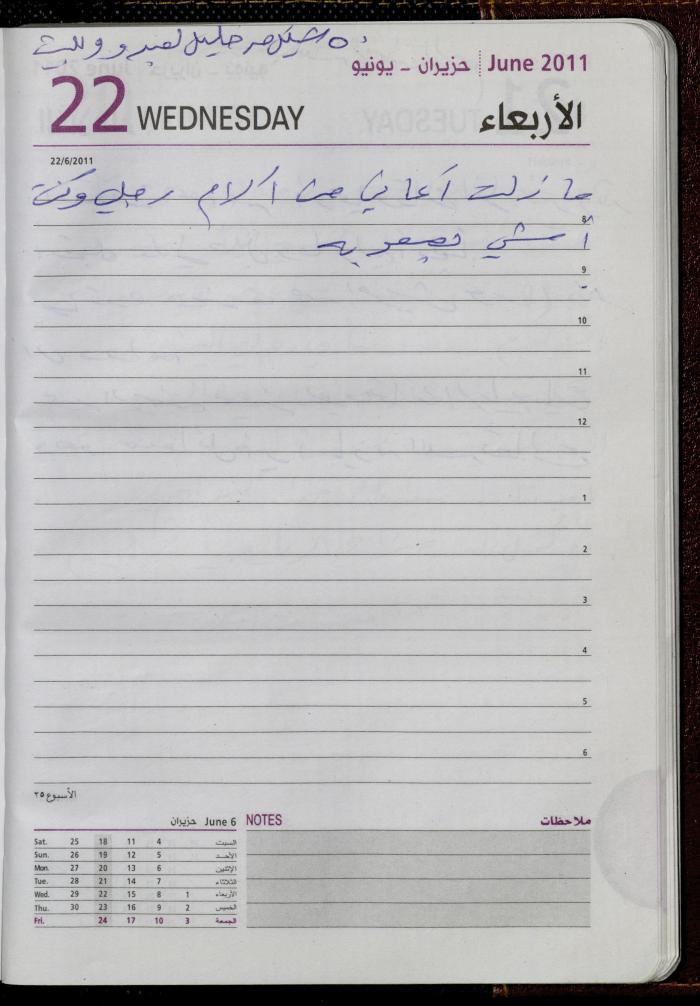 ٥٠ شيكل من خليل لعبد و
June 2011 حزيران - يونيو
22 WEDNESDAY الأربعاء
22/6/2011
ما زلت أعاني من آلام رجلي وكنت
8
أمشي بصعوبة
9
10
11
12
1
2
3
4
5
6
الأسبوع ٢٥
June 6 حزيران
Sat. 25 18 11 4 السبت
Sun. 26 19 12 5 الأحد
Mon. 27 20 13 6 الإثنين
Tue. 28 21 14 7 الثلاثاء
Wed. 29 22 15 8 1 الأربعاء
Thu. 30 23 16 9 2 الخميس
Fri. 24 17 10 3 الجمعة
NOTES ملاحظات